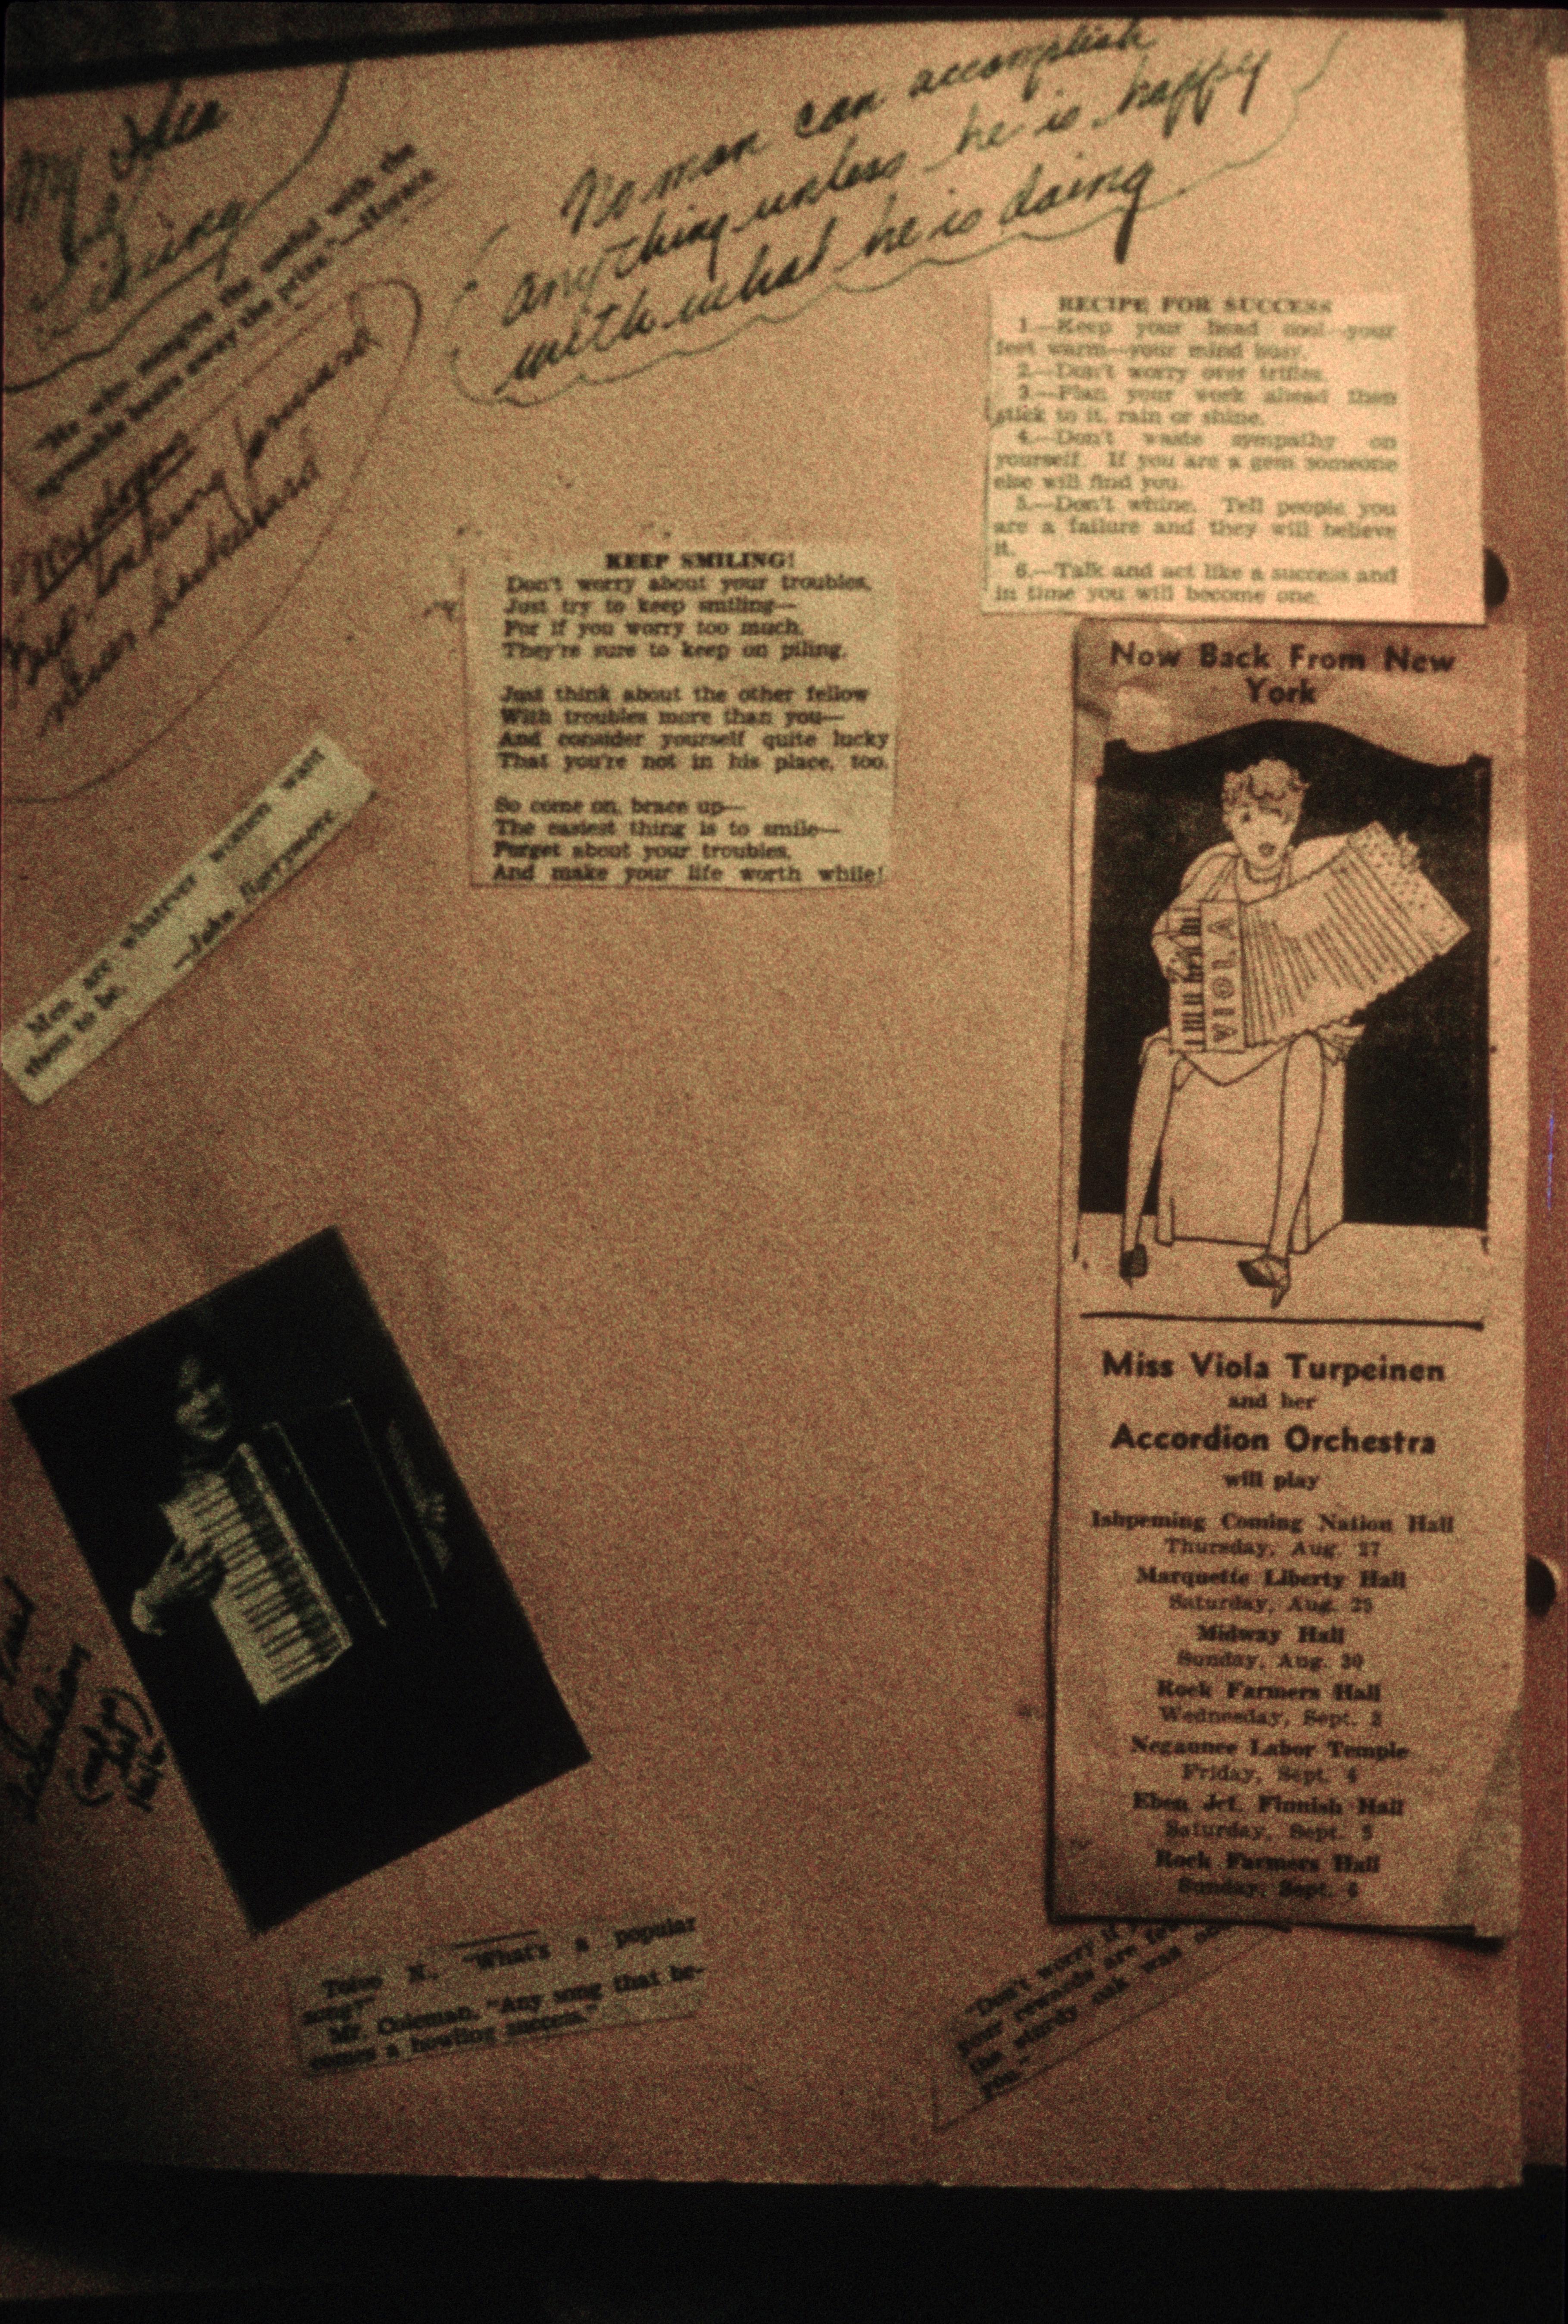 My Idea
of
No man can accomplish
anything unless he is happy
with what he is doing
My slogan
Keep looking forward
never backward
RECIPE FOR SUCCESS
1.—Keep your head cool—your
feet warm—your mind busy.
2.—Don't worry over trifles.
3.—Plan your work ahead then
stick to it, rain or shine.
4.—Don't waste sympathy on
yourself. If you are a gem someone
else will find you.
5.—Don't whine. Tell people you
are a failure and they will believe
it.
6.—Talk and act like a success and
in time you will become one.
KEEP SMILING!
Don't worry about your troubles,
Just try to keep smiling—
For if you worry too much,
They're sure to keep on piling.
Just think about the other fellow
With troubles more than you—
And consider yourself quite lucky
That you're not in his place, too.
So come on, brace up—
The easiest thing is to smile—
Forget about your troubles,
And make your life worth while!
Men are whatever women want
them to be.
—John Barrymore.
Now Back From New
York
VIOLA
Miss Viola Turpeinen
and her
Accordion Orchestra
will play
Ishpeming Coming Nation Hall
Thursday, Aug. 27
Marquette Liberty Hall
Saturday, Aug.
Midway Hall
Sunday, Aug. 30
Rock Farmers Hall
Wednesday, Sept. 2
Negaunee Labor Temple
Friday, Sept. 4
Eben Jct. Finnish Hall
Saturday, Sept. 5
Rock Farmers Hall
Sunday, Sept. 6
Toivo N., "What's a popular
song?"
Mr. Coleman, "Any song that be-
comes a howling success."
"Don't worry if
your rewards are
the sturdy oak was
you."